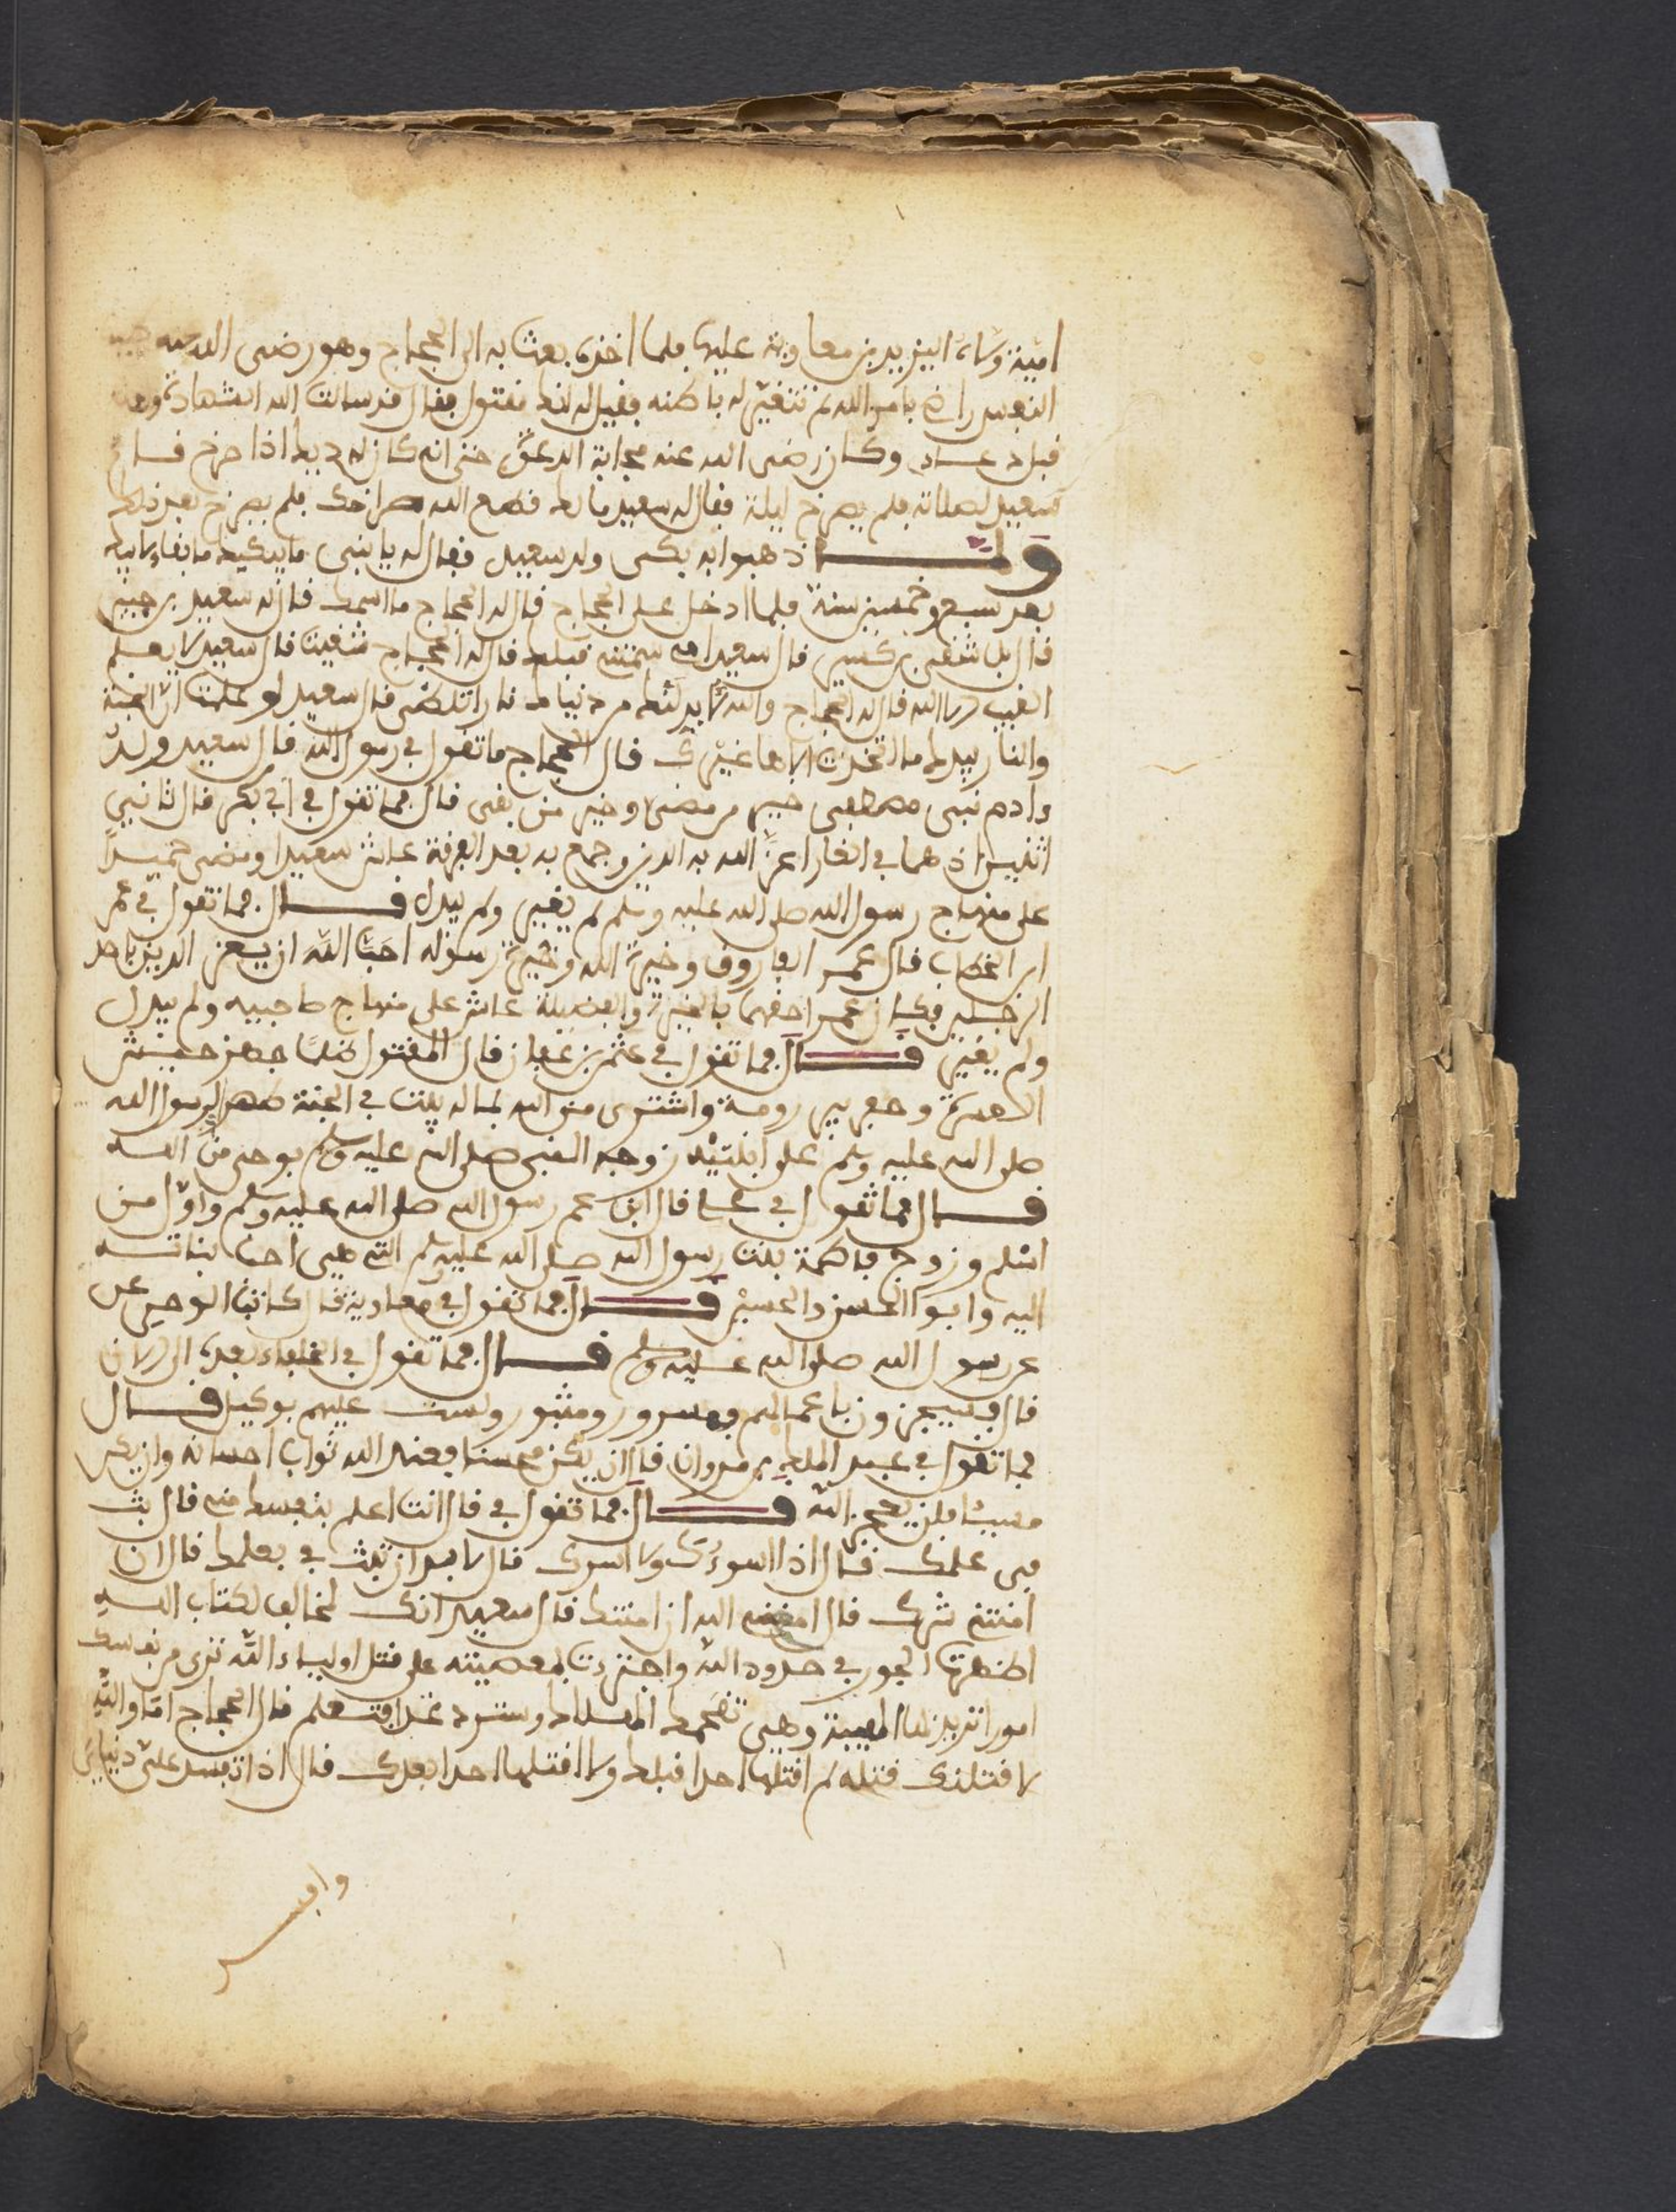 امية وكان اليزيد بن معاوية عليها فلما اخذه بعث به الى الحجاج وهو رضى الله عنه
النفس راض بامر الله لم تتغير له باطنه فقيل له انك مقتول فقال قد سالت الله الشهادة
وكان رضى الله عنه مجاب الدعوة حتى انه كان له ديك اذا صرخ قام
سعيد لصلاته فلم يصرخ ليلة فقال له سعيد مالك قطع الله صراخك فلم يصرخ بعد ذلك
ولما ذهبوا به بكى ولد سعيد فقال له يا بنى ما يبكيك ما بقاء ابيك
بعد سبع وخمسين سنة فلما ادخل على الحجاج قال له الحجاج ما اسمك قال له سعيد بن جبير
قال بل شقى بن كسير قال سعيد امى سمتنى قبلك قال له الحجاج شقيت قال سعيد لا يعلم
الغيب الا الله قال له الحجاج والله لابدلنك من دنياك نارا تلظى قال سعيد لو علمت ان الجنة
والنار بيدك ما اتخذت الاها غيرك قال الحجاج ما تقول في رسول الله قال سعيد ولد
ءادم نبى مصطفى خير من مضى وخير من بقى قال فما تقول في ابى بكر قال ثانى
اثنين اذ هما في الغار اعز الله به الدين وجمع به بعد الفرقة عاش سعيدا ومضى حميدا
على منهاج رسول الله صلى الله عليه وسلم لم يغير ولم يبدل قال فما تقول في عمر
ابن الخطاب قال عمر الفاروق وخيرة الله وخيرة رسوله احب الله ان يعز الدين باحد
الرجلين فكان عمر احقهما بالخيرة والفضيلة عاش على منهاج صاحبيه ولم يبدل
ولم يغير قال فما تقول في عثمن بن عفان قال المقتول ظلما جهز جيش
العسرة وحفر بير رومة واشترى من الله بماله بيت في الجنة صهر لرسول الله
صلى الله عليه وسلم على ابنتيه زوجه النبى صلى الله عليه وسلم بوحى من الله
قال فما تقول في على قال ابن عم رسول الله صلى الله عليه وسلم واول من
اسلم وزوج فاطمة بنت رسول الله صلى الله عليه وسلم التى هى احب بناته
اليه وابو الحسن والحسين قال فما تقول في معاوية قال كاتب الوحى عن
عن رسول الله صلى الله عليه وسلم قال فما تقول في الخلفاء بعده الى الان
قال سيجزون باعمالهم فمسرور ومثبور ولست عليهم بوكيل قال
فما تقول في عبد الملك بن مروان قال ان يكن محسنا فعند الله ثواب احسانه وان يكن
مسيئا فلن يعجز الله قال فما تقول في قال انت اعلم بنفسك منى قال بث
فى علمك قال اذا اسوءك ولا اسرك قال لابد ان تبث في بعلمك قال ان
امنتنى شرك قال امننى الله ان امنتك قال سعيد انك لمخالف لكتاب الله
اظهرت الجور في حدود الله واجترءت لمعصيته على قتل اولياء الله ترى من نفسك
امورا تريد بها الهيبة وهى تقحمك الهلاك وسترد غدا فتعلم قال الحجاج اما والله
لا قتلنك قتلة لم اقتلها احدا قبلك ولا اقتلها احدا بعدك قال اذا تفسد على دنياى
وافسد